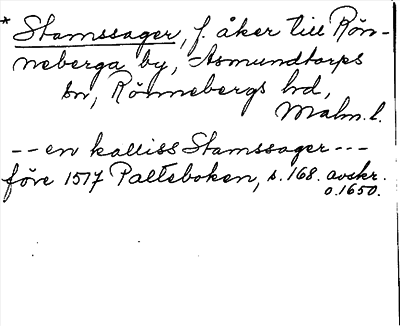 * Stamssager, f. åker till Rön-
neberga by, Asmundtorps
sn, Rönnebergs hd,
Malm. l.
-- en kalliss Stamssager ---
före 1517 Palteboken, s. 168. avskr.
o. 1650.